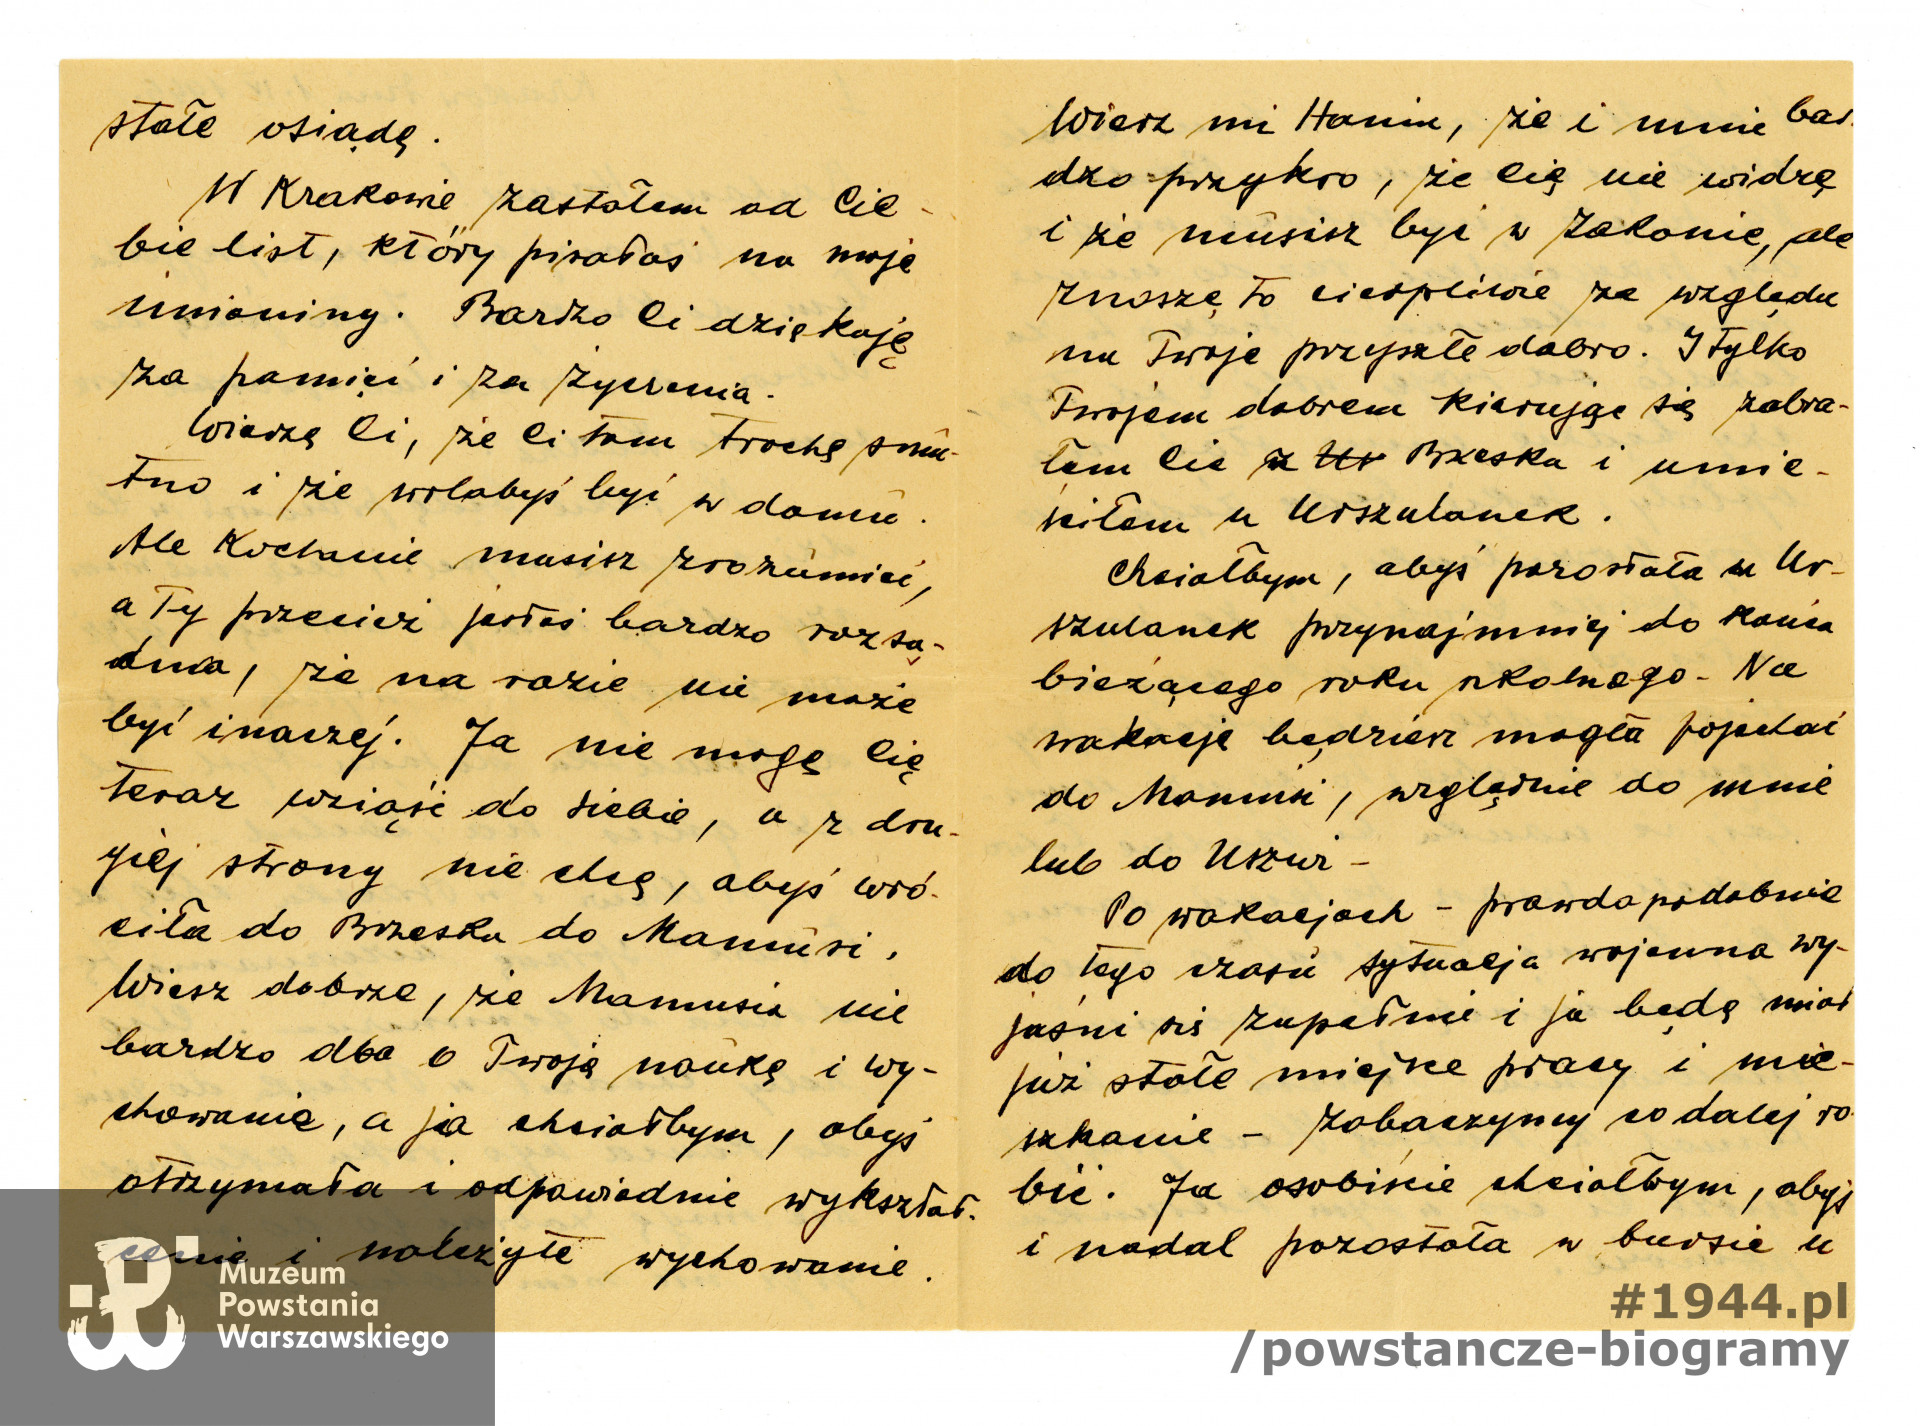 stałe osiądę.
W Krakowie zastałem od Cie-
bie list, który pisałaś na moje
imieniny. Bardzo Ci dziękuję
za pamięć i za życzenia.
Wierzę Ci, że Ci tam trochę smu-
tno i że wolabyś być w domu.
Ale Kochanie musisz zrozumieć,
a Ty przecież jesteś bardzo rozsą-
dna, że na razie nie może
być inaczej. Ja nie mogę Cię
teraz wziąść do siebie, a z dru-
giej strony nie chcę, abyś wró-
ciła do Brzeska do Mamusi.
Wiesz dobrze, że Mamusia nie
bardzo dba o Twoją naukę i wy-
chowanie, a ja chciałbym, abyś
otrzymała i odpowiednie wykształ-
cenie i należyte wychowanie.
Wierz mi Haniu, że i mnie bar-
dzo przykro, że Cię nie widzę
i że musisz być w Zakonie, ale
znoszę to cierpliwie ze względu
na Twoje przyszłe dobro. I tylko
Twojem dobrem kierując się zabra-
łem Cie z Brzeska i umie-
ściłem u Urszulanek.
Chciałbym, abyś pozostała u Ur-
szulanek przynajmniej do końca
bieżącego roku szkolnego. Na
wakacje będziesz mogła pojechać
do Mamusi, względnie do mnie
lub do Uszwi –
Po wakacjach – prawdopodobnie
do tego czasu sytuacja wojenna wy-
jaśni się zupełnie i ja będę miał
już stałe miejsce pracy i mie-
szkanie – zobaczymy co dalej ro-
bić. Ja osobiście chciałbym, abyś
i nadal pozostała w bursie u
Muzeum
Powstania
Warszawskiego
#1944.pl
/powstancze-biogramy